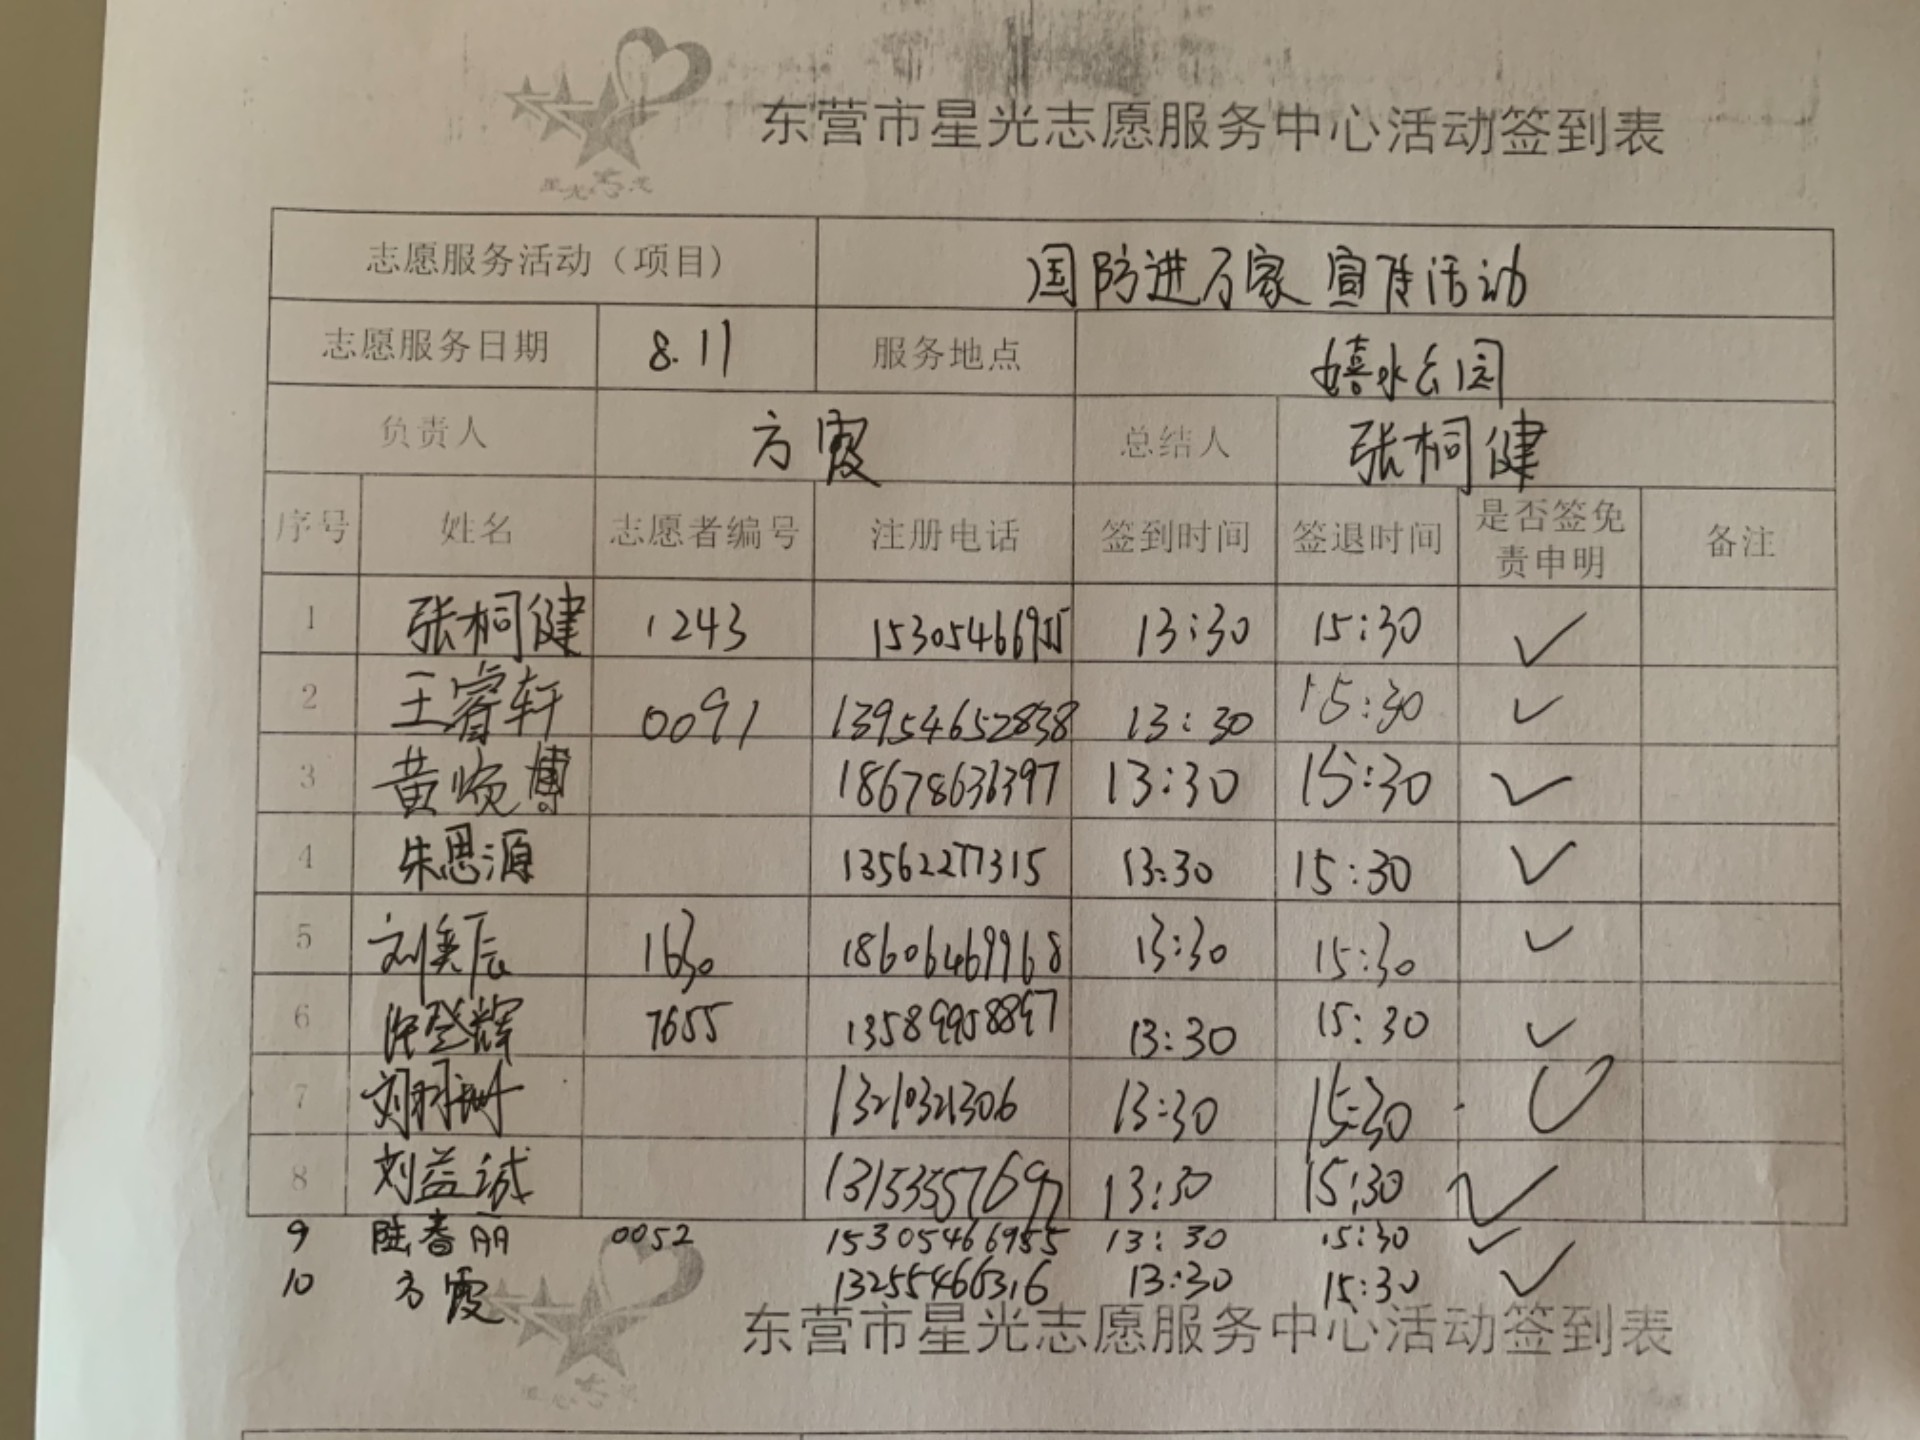 东营市星光志愿服务中心活动签到表
志愿服务活动（项目） 国防进万家宣传活动
志愿服务日期 8.11 服务地点 嬉水公园
负责人 方霞 总结人 张桐健
序号 姓名 志愿者编号 注册电话 签到时间 签退时间 是否签免责申明 备注
1 张桐健 1243 15305466955 13:30 15:30 ✓
2 王睿轩 0091 13954652838 13:30 15:30 ✓
3 黄 博 18678631397 13:30 15:30 ✓
4 朱思源 13562277315 13:30 15:30 ✓
5 刘奕辰 1630 18606469968 13:30 15:30 ✓
6 登辉 7655 13589958897 13:30 15:30 ✓
7 刘 13:30 15:30 ✓
8 刘益诚 13:30 15:30 ✓
9 陆春丽 0052 15305466955 13:30 15:30 ✓
10 方霞 13255466316 13:30 15:30 ✓
东营市星光志愿服务中心活动签到表